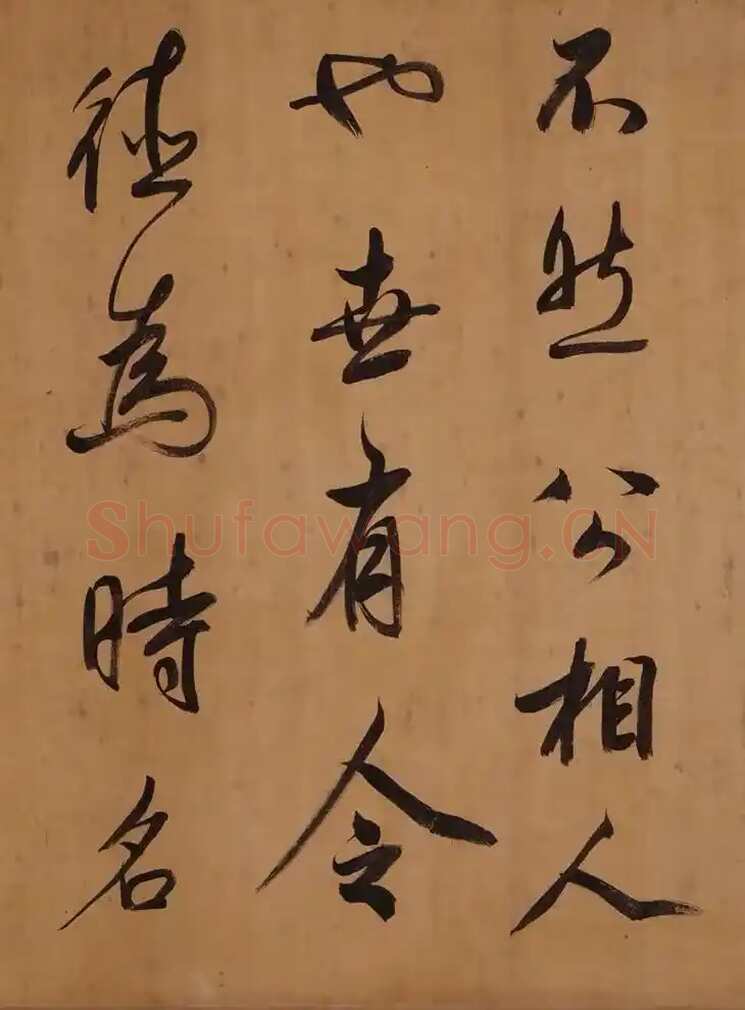 不然公相人
也世有令
德為時名
Shufawang.CN